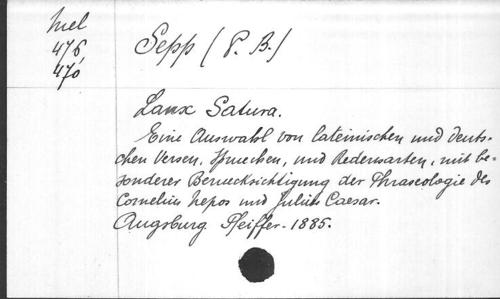 Mel
476,
470
Sepp (P. B.)
Lanx Satura.
Eine Auswahl von lateinischen und deuts-
chen Versen, Spruechen, und Redensarten, mit be-
sonderer Beruecksichtigung der Phraseologie des
Cornelius Nepos und Julius Caesar.
Augsburg Pfeiffer. 1885.